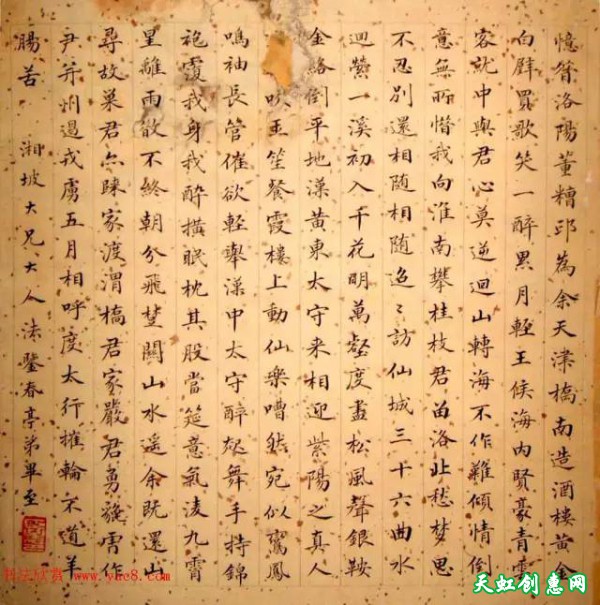 憶昔洛陽董糟邱為余天津橋南造酒樓黃金
白璧買歌笑一醉累月輕王候海内賢豪青雲
客就中與君心莫逆迴山轉海不作難傾情倒
意無所惜我向淮南攀桂枝君留洛北愁梦思
不忍別還相随相随迢〻訪仙城三十六曲水
迴縈一溪初入千花明萬壑度盡松風聲銀鞍
金絡倒平地漢東太守来相迎紫陽之真人
吹玉笙餐霞樓上動仙樂嘈然宛似鸞鳳
鳴袖長管催欲輕舉漢中太守醉起舞手持錦
袍覆我身我醉橫眠枕其股當筵意氣凌九霄
星離雨散不終朝分飛楚關山水遥余既還山
尋故巢君亦歸家渡渭橋君家嚴君勇貔虎作
尹并州遏戎虜五月相呼度太行摧輪不道羊
腸苦 湘坡大兄大人法鑒春亭弟畢至
书法欣赏 www.yac8.com
天虹创惠网